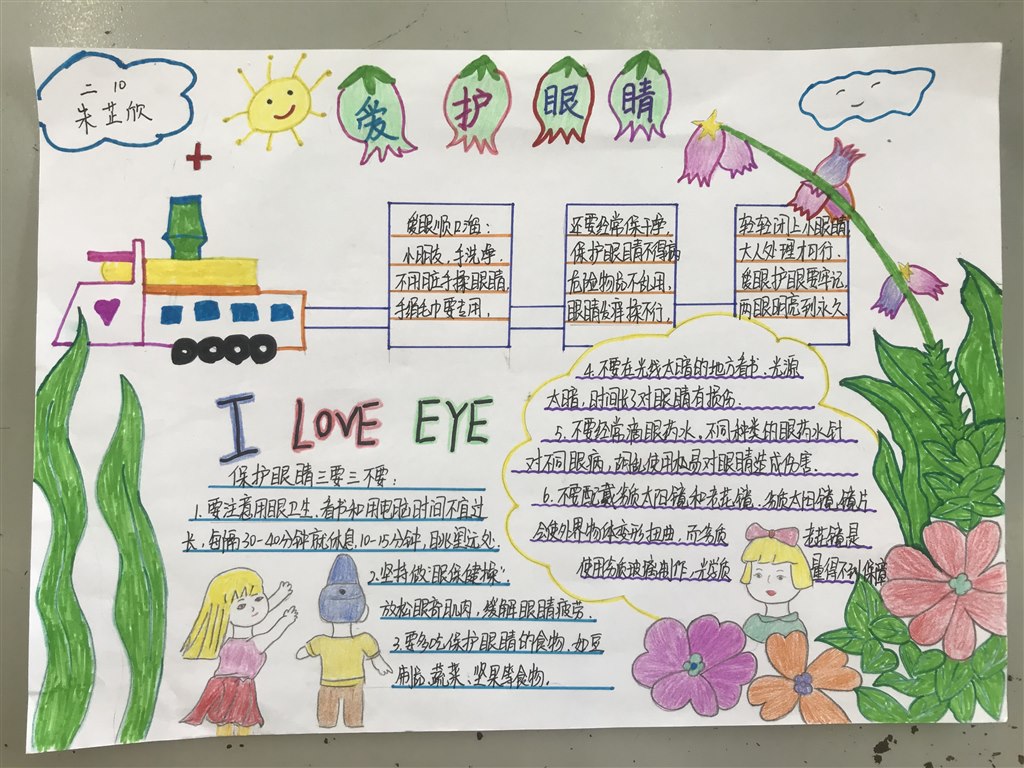 二 10
朱芷欣
爱护眼睛
爱眼顺口溜:
小朋友,手洗净,
不用脏手揉眼睛,
手绢毛巾要专用,
还要经常保干净,
保护眼睛不得病
危险物品不乱用,
眼睛发痒揉不行,
轻轻闭上小眼睛
大人处理才可行.
爱眼护眼要牢记
两眼明亮到永久
I LOVE EYE
保护眼睛三要三不要:
1.要注意用眼卫生、看书和用电脑时间不宜过
长,每隔30-40分钟就休息10-15分钟,眺望远处.
2.坚持做"眼保健操"
放松眼部肌肉,缓解眼睛疲劳.
3.要多吃保护眼睛的食物,如豆
制品、蔬菜、坚果等食物.
4.不要在光线太暗的地方看书、光源
太暗,时间长了对眼睛有损伤.
5.不要经常滴眼药水、不同种类的眼药水针
对不同眼病,随便使用极易对眼睛造成伤害.
6.不要配戴劣质太阳镜和老花镜、劣质太阳镜镜片
会使外界物体变形扭曲,而劣质 老花镜是
使用劣质玻璃制作,光学质 量得不到保障